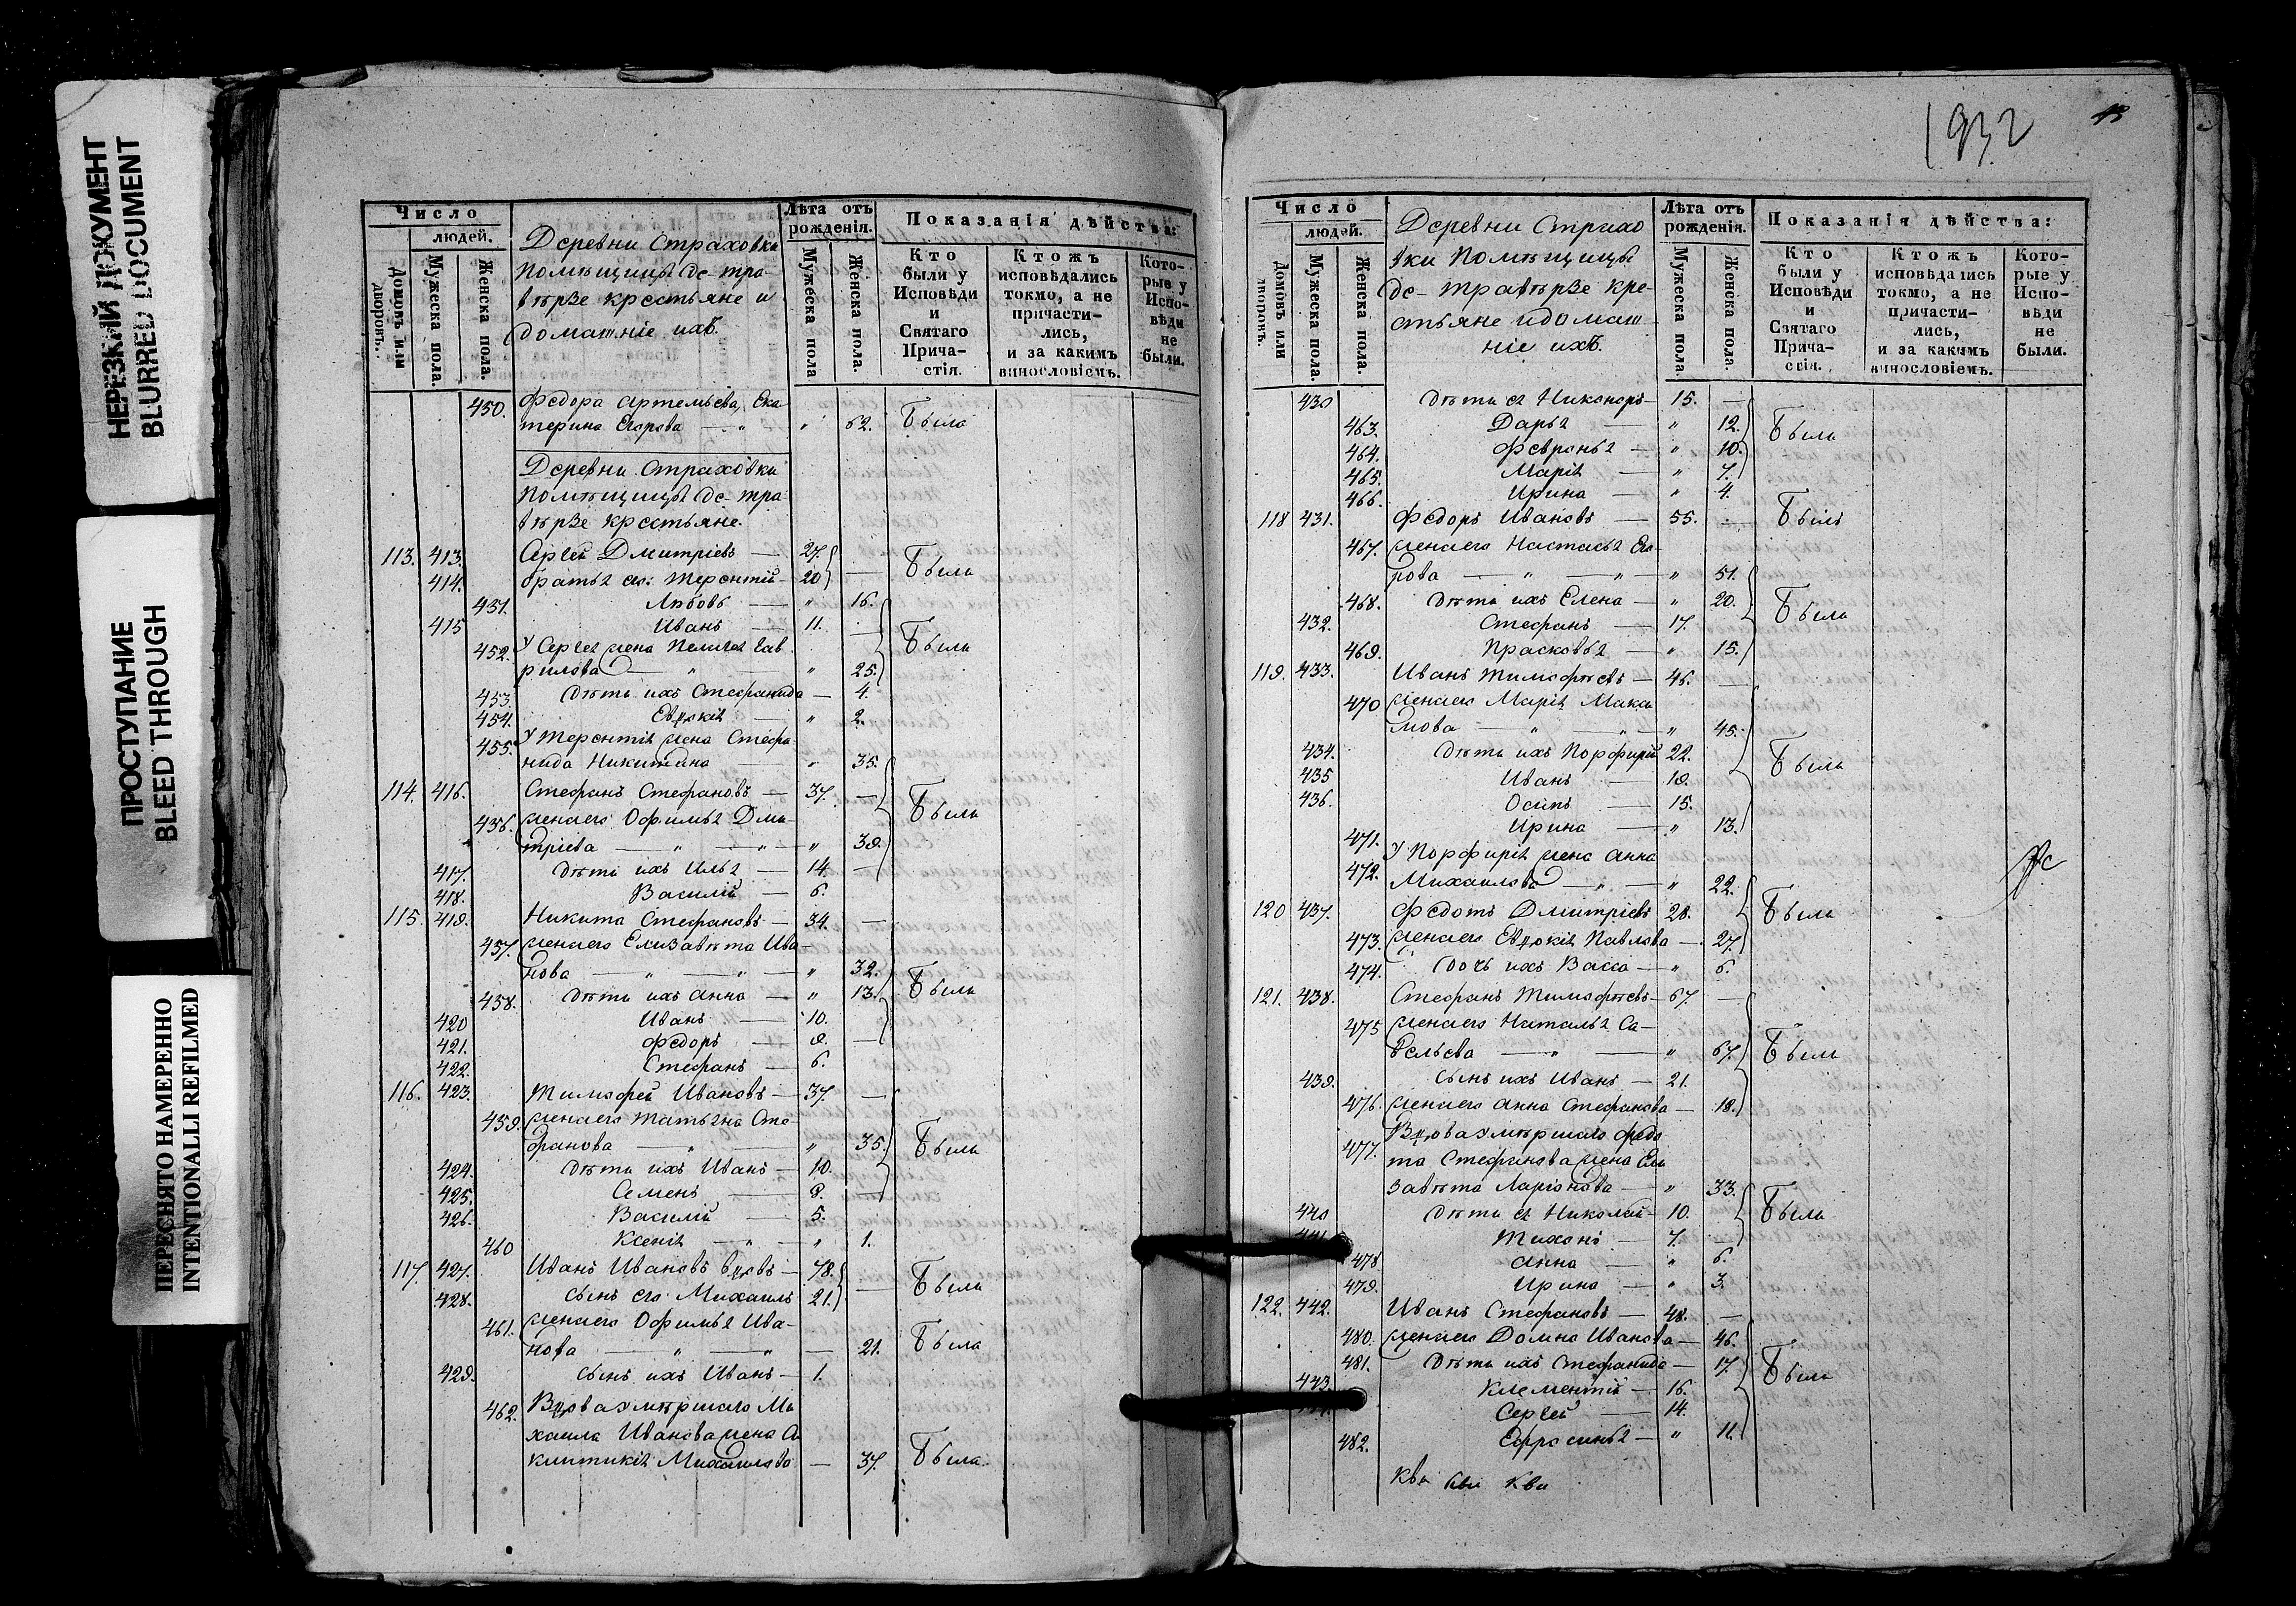 НЕРЕЗКИЙ ДОКУМЕНТ
BLURRED DOCUMENT
ПРОСТУПАНИЕ
BLEED THROUGH
ПЕРЕСНЯТО НАМЕРЕННО
INTENTIONALLI REFILMED
Число
людей.
Домовъ или дворовъ.
Мужеска пола.
Женска пола.
Деревни Страховки
Помѣщицы де-тра-
вѣрзе крестьяне и
домашніе ихъ.
Лѣта отъ рожденія.
Мужеска пола
Женска пола.
Показанія дѣйства:
Кто были у Исповѣди и Святаго Прича-стія.
Ктожъ исповѣдались токмо, а не причасти-лись, и за какимъ винословіемъ.
Кото-рые у Испо-вѣди не были.
450. Федора Артемьева, Ека-
терина Егорова — " " 62. Была
Деревни Страховки
Помѣщицы де-тра-
вѣрзе крестьяне.
113. 413. Сергѣй Дмитріевъ — 27.
414. братья его: Терентій — 20 — Были
451. Любовь — " 16.
415 Иванъ — 11.
452. У Сергѣя жена Пелагея Гав
рилова — " " 25. Были
453. Дѣти ихъ Стефанида — 4.
454. Евдокія — " 2.
455. У Терентія жена Стефа-
нида Никитина — " 35.
114. 416. Стефанъ Стефановъ — 37. —
456. жена его Офимья Дми-
тріева — " — " — " 39. Были
417. Дѣти ихъ Илья — 14. —
418. Василій — 6.
115. 419. Никита Стефановъ — 34. —
457. жена его Елизавѣта Ива-
нова — " — " — " 32.
458. Дѣти ихъ Анна — " 13. Были
420 Иванъ — 10.
421. Федоръ — 9. —
422. Стефанъ — 6.
116. 423. Тимофей Ивановъ — 37. —
459. жена его Татьяна Сте-
фанова — " — " 35. Были
424. Дѣти ихъ Иванъ — 10.
425. Семенъ — 8. —
426. Василій — 5.
460 Ксенія — " — " 1.
117. 427. Иванъ Ивановъ вдовъ — 78.
428. сынъ его Михаилъ 21. — Были
461. жена его Офимья Ива-
нова — " — " — 21. Была
429. сынъ ихъ Иванъ — 1.
462. Вдова умѣршаго Ми
хаила Иванова жена Си
клитикія Михайлова — 37. Была.
1932
Число
людей.
Домовъ или дворовъ.
Мужеска пола.
Женска пола.
Деревни Страхо
вки Помѣщицы
де-травѣрзе кре-
стьяне и домаш-
ніе ихъ.
Лѣта отъ рожденія.
Мужеска пола.
Женска пола
Показанія дѣйства:
Кто были у Исповѣди и Святаго Прича-стія.
Ктожъ исповѣдались токмо, а не причасти-лись, и за какимъ винословіемъ.
Кото-рые у Испо-вѣди не были.
430 Дѣти ея Никоноръ — 15. —
463. Дарья — " 12. Были
464. Февронья — " 10.
465. Марія — " 7.
466. Ирина — " 4.
118 431. Федоръ Ивановъ — 55. — Былъ
467. жена его Настасья Его-
рова — " — " — " 51.
468. Дѣти ихъ Елена — " 20. Были
432. Стефанъ — 17.
469. Прасковья — " 15.
119. 433. Иванъ Тимофѣевъ — 46. —
470 жена его Марія Макси
мова — " — " " 45.
434. Дѣти ихъ Порфирій 22. Были
435 Иванъ — 19.
436. Осипъ — 15.
471. Ирина — " 13.
472. У Порфирія жена Анна
Михаилова — " — " 22.
120 437. Федотъ Дмитріевъ 28. Были
473. жена его Евдокія Павлова — 27.
474. дочь ихъ Васса — " 6.
121. 438. Стефанъ Тимофѣевъ — 67. —
475 жена его Наталья Са-
вельева — " — " 67. Были
439. сынъ ихъ Иванъ — 21.
476. жена его Анна Стефанова — 18.
477. Вдова умѣршаго Федо
та Стефанова жена Ели
завѣта Ларіонова — " 33.
440 Дѣти ея Николай — 10. Были
441. Тихонъ — 7. —
478 Анна — " 6.
479. Ирина — " 3.
122. 442. Иванъ Стефановъ — 48. —
480. жена его Домна Иванова — 46.
481. Дѣти ихъ Стефанида — 17. Были
443. Клементій — 16.
Сергѣй — 14.
482. Ефросинья — " 11.